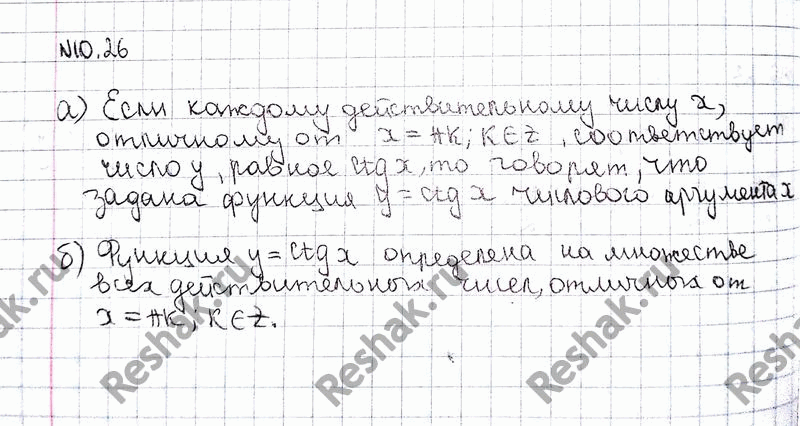 №10.26
а) Если каждому действительному числу x,
отличному от x = πk; k∈Z, соответствует
число y, равное ctg x, то говорят, что
задана функция y = ctg x числового аргумента x
б) Функция y = ctg x определена на множестве
всех действительных чисел, отличных от
x = πk; k∈Z.
Reshak.ru
Reshak.ru
Reshak.ru
Reshak.ru